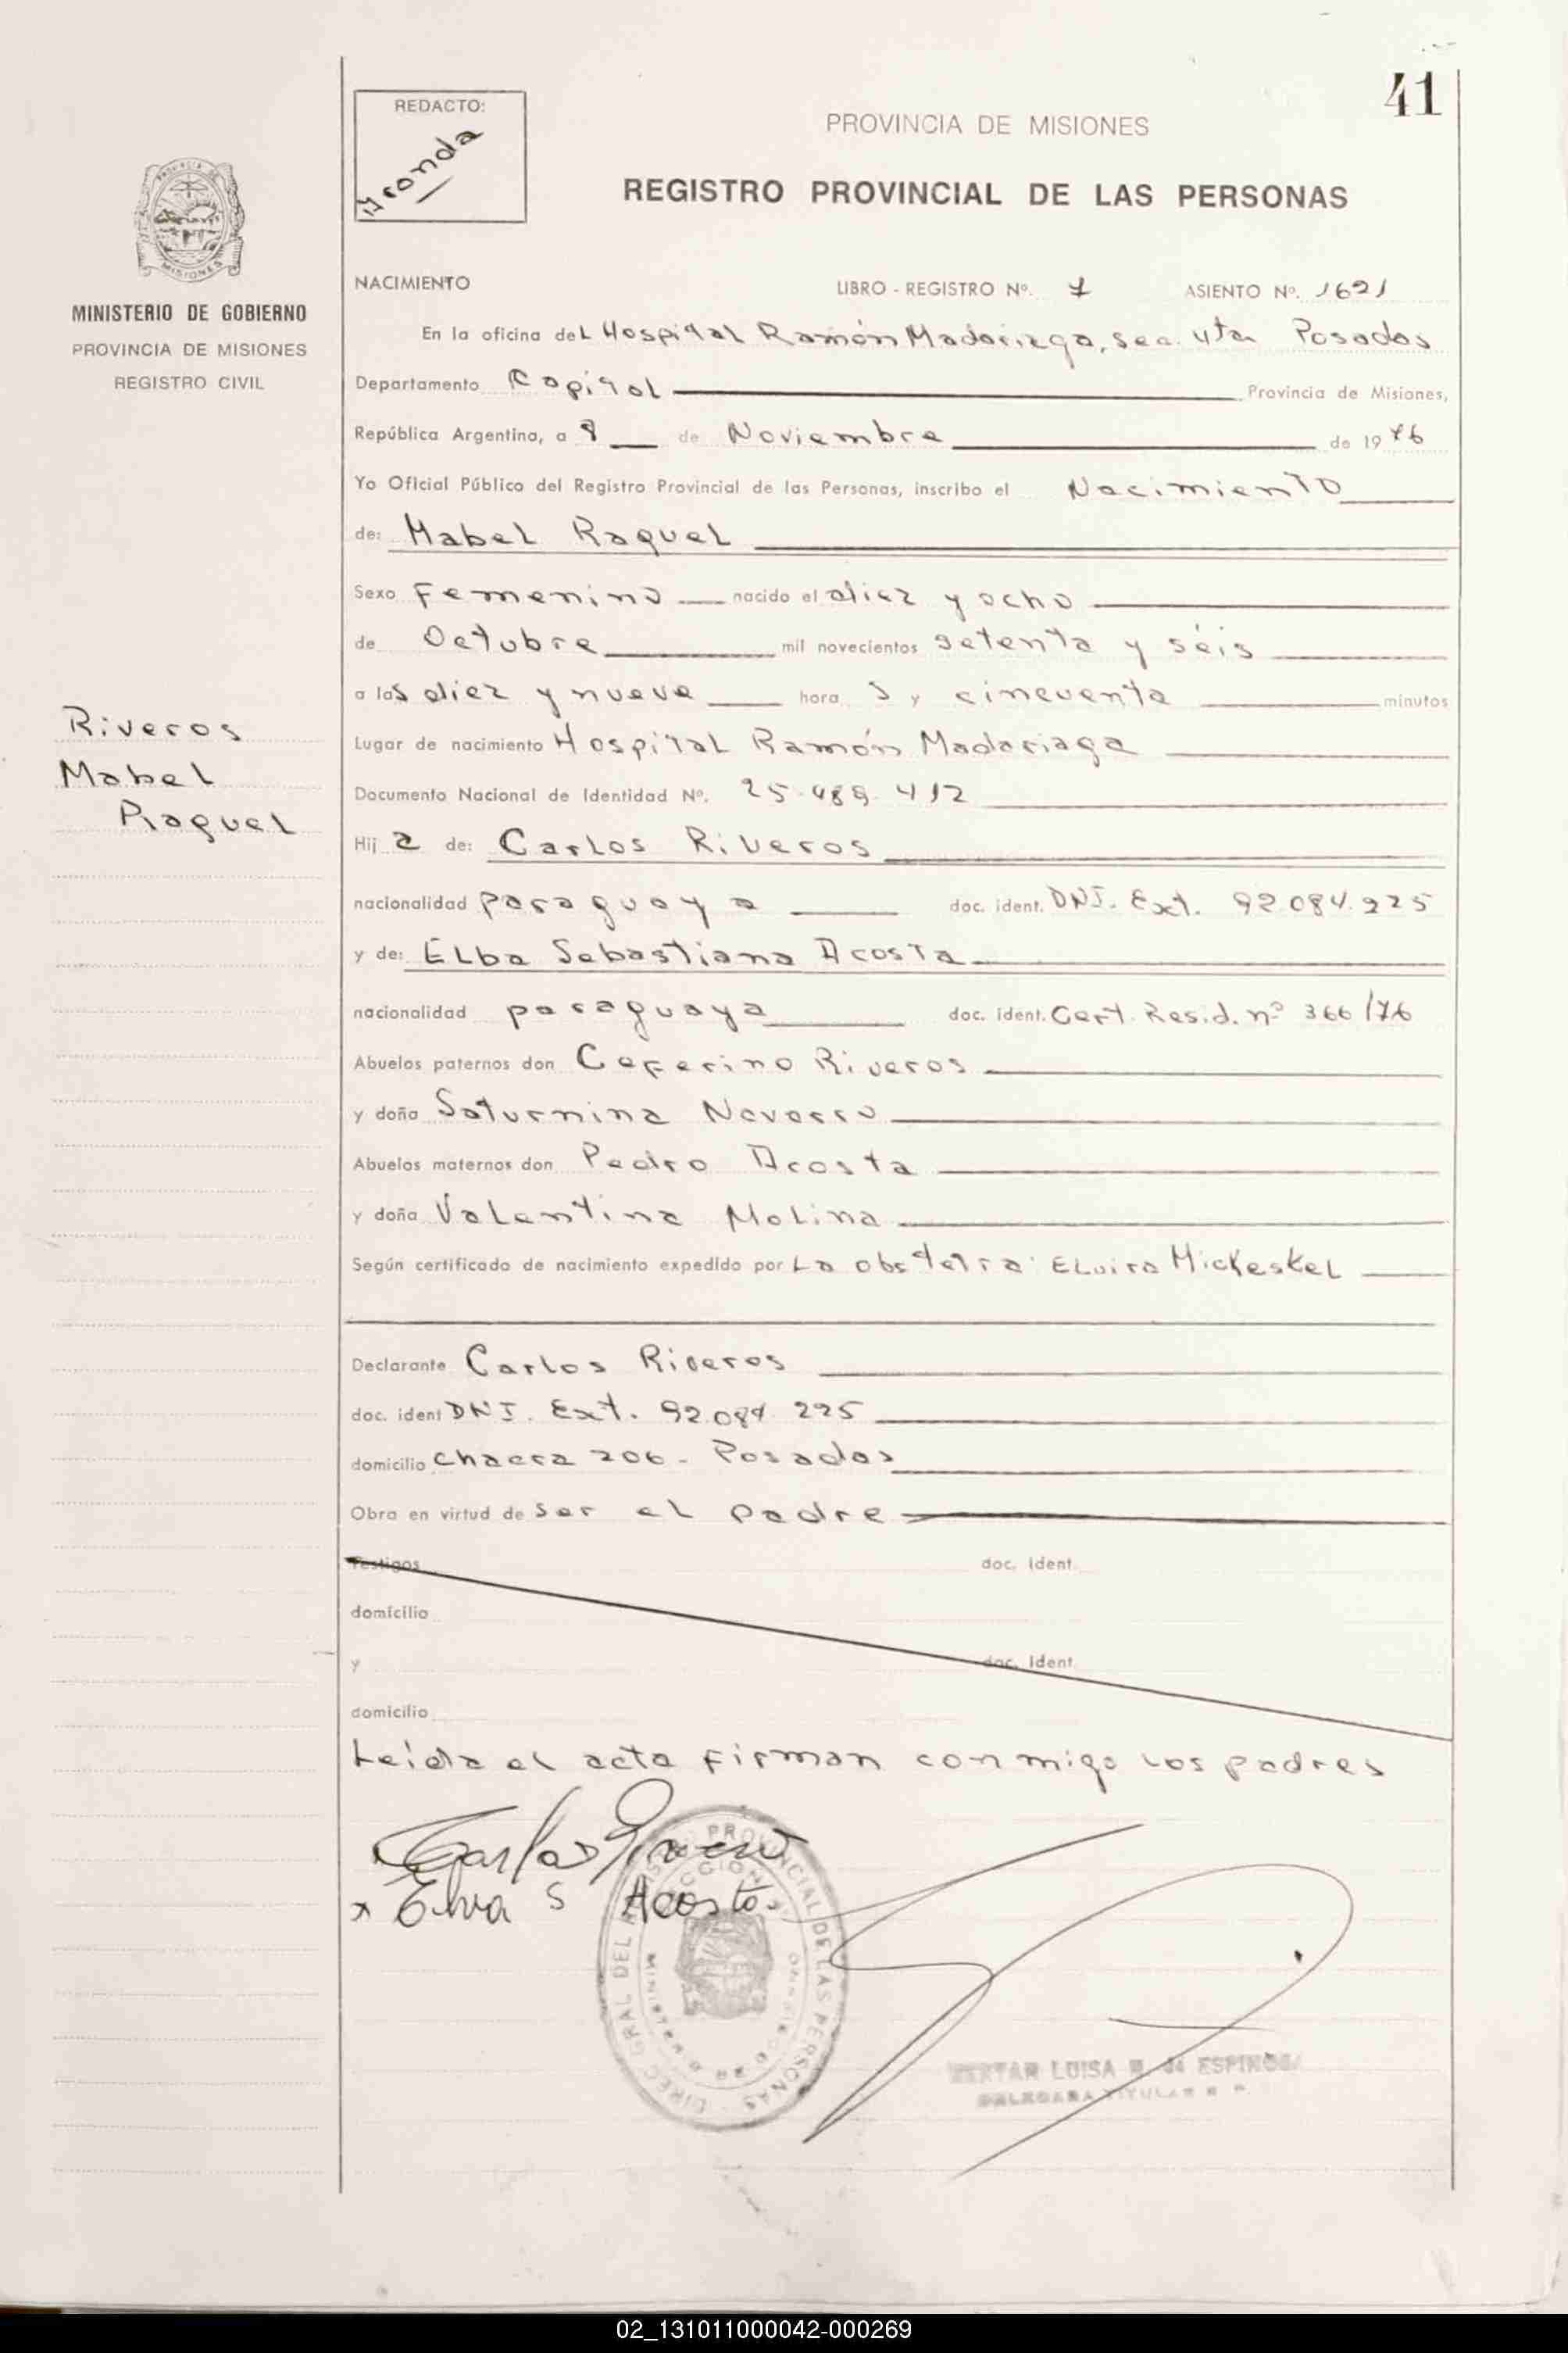 41
REDACTO:
PROVINCIA DE MISIONES
REGISTRO PROVINCIAL DE LAS PERSONAS
MINISTERIO DE GOBIERNO
PROVINCIA DE MISIONES
REGISTRO CIVIL
NACIMIENTO LIBRO - REGISTRO Nº. 7 ASIENTO Nº. 1621
En la oficina del Hospital Ramón Madariaga, sec. 4ta Posadas
Departamento Capital Provincia de Misiones,
República Argentina, a 8 de Noviembre de 1976
Yo Oficial Público del Registro Provincial de las Personas, inscribo el Nacimiento
de: Mabel Raquel
Sexo Femenino nacido el diez y ocho
de Octubre mil novecientos setenta y séis
a las diez y nueve hora s y cincuenta minutos
Riveros
Mabel
Raquel
Lugar de nacimiento Hospital Ramón Madariaga
Documento Nacional de Identidad Nº. 25.489.412
Hij a de: Carlos Riveros
nacionalidad paraguaya doc. ident. DNI. Ext. 92.084.225
y de: Elba Sebastiana Acosta
nacionalidad paraguaya doc. ident. Cert. Resid. nº 366/76
Abuelos paternos don Ceferino Riveros
y doña Saturnina Navarro
Abuelos maternos don Pedro Acosta
y doña Valentina Molina
Según certificado de nacimiento expedido por La obstetra: Elvira Mickeskel
Declarante Carlos Riveros
doc. ident DNI. Ext. 92.084.225
domicilio Chacra 206 - Posadas
Obra en virtud de ser el padre
Testigos doc. ident.
domicilio
y doc. ident.
domicilio
Leída el acta firman conmigo los padres
Carlos Riveros
x Elva S Acosta.
DIREC. GRAL DEL REGISTRO PROVINCIAL DE LAS PERSONAS
LUISA ESPINOSA
TITULAR
02_131011000042-000269